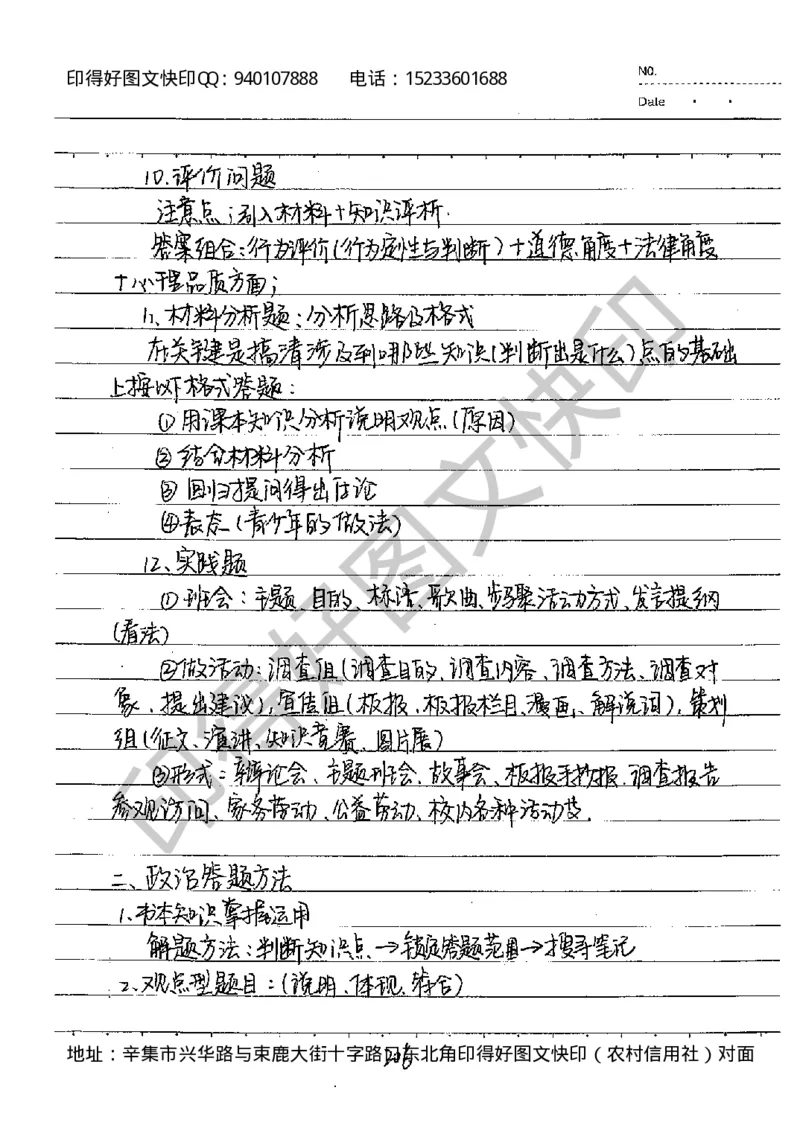 印得好图文快印QQ：940107888 电话：15233601688
NO.
Date
10.评价问题
注意点：引入材料+知识评析.
答案组合：行为评价(行为定性与判断)+道德角度+法律角度
+心理品质方面；
11、材料分析题：分析思路及格式
在关键是搞清涉及到哪些知识(判断出是什么)点的基础
上按以下格式答题：
①用课本知识分析说明观点(原因)
②结合材料分析
③回归提问得出结论
④表态(青少年的做法)
12、实践题
①班会：主题、目的、标语、歌曲、步骤活动方式、发言提纲
(看法)
②做活动：调查组(调查目的、调查内容、调查方法、调查对
象、提出建议)，宣传组(板报、板报栏目、漫画、解说词)，策划
组(征文、演讲、知识竞赛、图片展)
③形式：辩论会、主题班会、故事会、板报手抄报、调查报告
参观访问、家务劳动、公益劳动、校内各种活动及.
二、政治答题方法
1、书本知识掌握运用
解题方法：判断知识点→锁定答题范围→搜寻笔记
2、观点型题目：(说明、体现、符合)
地址：辛集市兴华路与束鹿大街十字路口东北角印得好图文快印（农村信用社）对面
印得好图文快印